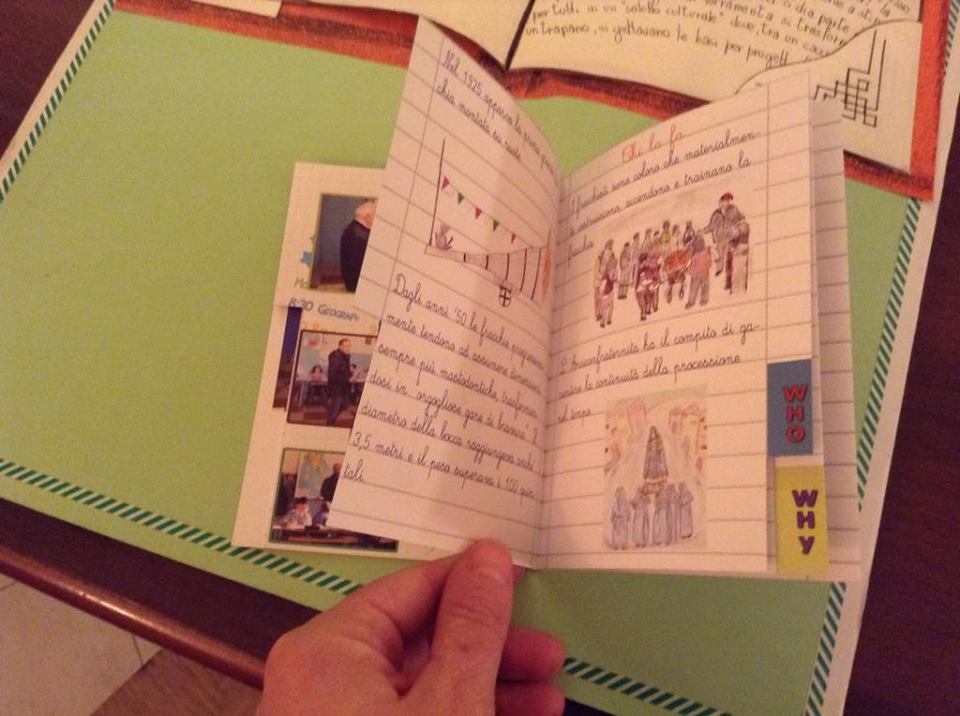 per tutti in un "salotto culturale" dove, tra un
un trapano, si gettavano le basi per progetti
Nel 1925 apparve la prima
chia montata su ruote.
8:30 GEOGRAF
Dagli anni '50 le fracchie
mente tendono ad assumere dimensioni
sempre più mastodontiche, trasforman
dosi in "orgogliose gare di bravura". Il
diametro della bocca raggiungeva anche
3,5 metri e il peso superava i 100 quin
tali.
Chi la fa
I fracchisti sono coloro che materialmen-
costruiscono, accendono e trainano la
fracchia
L'Arciconfraternita ha il compito di ga-
rantire la continuità della processione
nel tempo
WHO
WHY